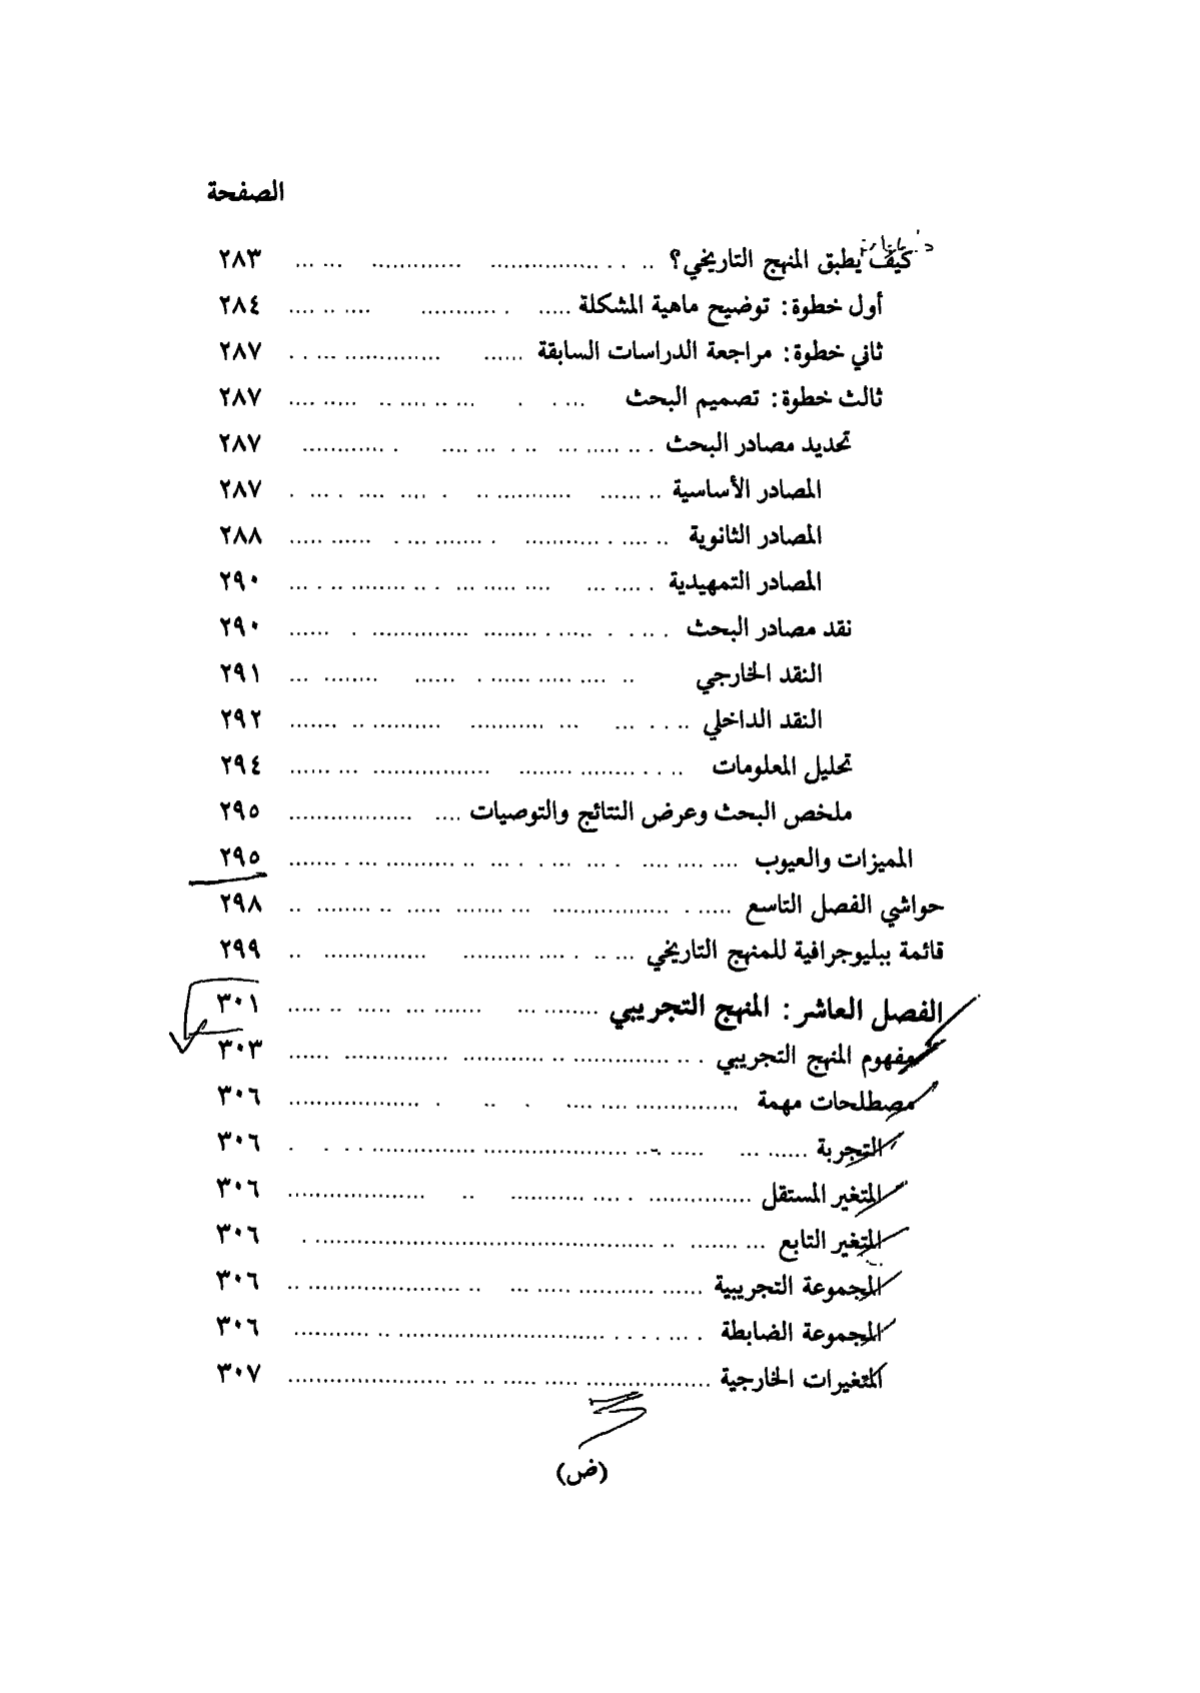 الصفحة
كيف يطبق المنهج التاريخي؟ ٢٨٣
أول خطوة: توضيح ماهية المشكلة ٢٨٤
ثاني خطوة: مراجعة الدراسات السابقة ٢٨٧
ثالث خطوة: تصميم البحث ٢٨٧
تحديد مصادر البحث ٢٨٧
المصادر الأساسية ٢٨٧
المصادر الثانوية ٢٨٨
المصادر التمهيدية ٢٩٠
نقد مصادر البحث ٢٩٠
النقد الخارجي ٢٩١
النقد الداخلي ٢٩٢
تحليل المعلومات ٢٩٤
ملخص البحث وعرض النتائج والتوصيات ٢٩٥
المميزات والعيوب ٢٩٥
حواشي الفصل التاسع ٢٩٨
قائمة ببليوجرافية للمنهج التاريخي ٢٩٩
الفصل العاشر: المنهج التجريبي ٣٠١
مفهوم المنهج التجريبي ٣٠٣
مصطلحات مهمة ٣٠٦
التجربة ٣٠٦
المتغير المستقل ٣٠٦
المتغير التابع ٣٠٦
المجموعة التجريبية ٣٠٦
المجموعة الضابطة ٣٠٦
المتغيرات الخارجية ٣٠٧
(ض)